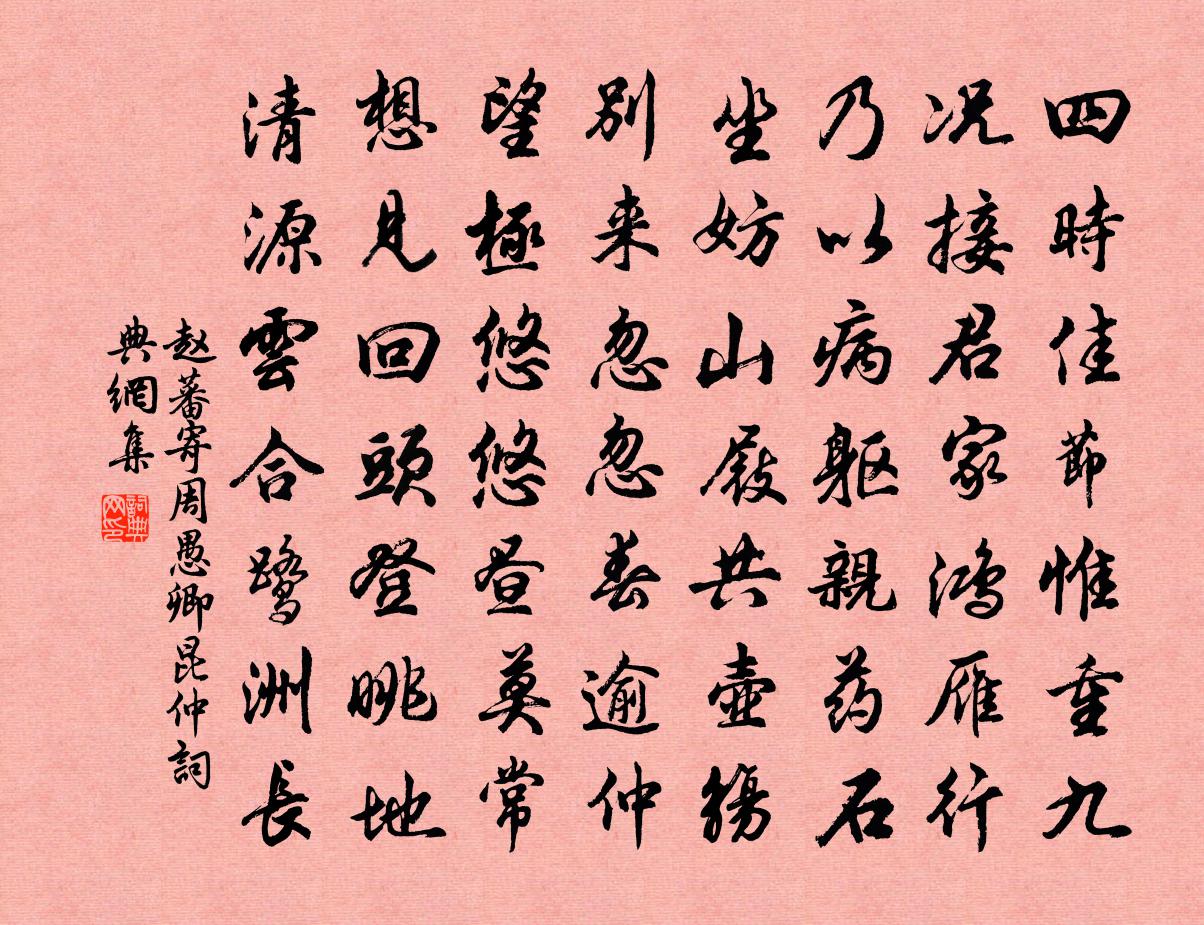 四時佳節惟重九
况接君家鴻雁行
乃以病躯親药石
坐妨山屐共壺觴
別来忽忽春逾仲
望極悠悠昼莫常
想見回頭登眺地
清源雲合鷺洲長
赵蕃寄周愚卿昆仲詞
典網集
詞典
网印